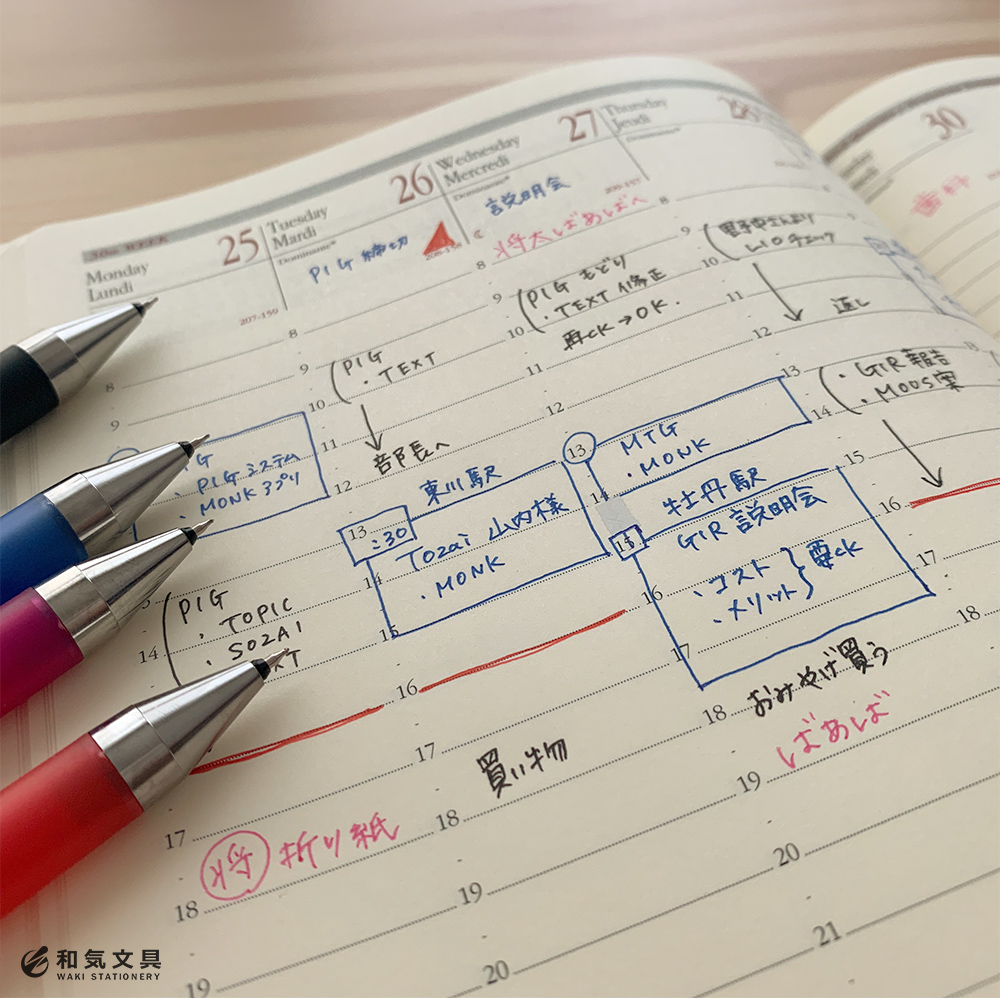 30th WEEK
Monday
Lundi
25
207-159
8
9
G
・PIGシステム
・MONKアプリ
PIG
・TOPIC
・SOZAI
14
17
将 折り紙
18
19
Tuesday
Mardi
26
Dominante*
PIG 締切
8
9
10
11
12
13
14
15
16
17
18
19
20
PIG
・TEXT
部長へ
東川駅
:30
Tozai 山内様
・MONK
買い物
Wednesday
Mercredi
27
Dominante*
説明会
将太ばあばへ
8
9
10
11
12
13
14
15
16
17
18
19
20
21
PIG もどり
・TEXT 修正
再CK→OK.
MTG
・MONK
牡丹駅
GIR 説明会
・コスト
・メリット
要CK
おみやげ買う
ばあばば
Thursday
Jeudi
28
8
9
10
11
12
13
14
15
16
17
18
返し
・GIR 報告
・MOOS案
30
歯科
和気文具
WAKI STATIONERY